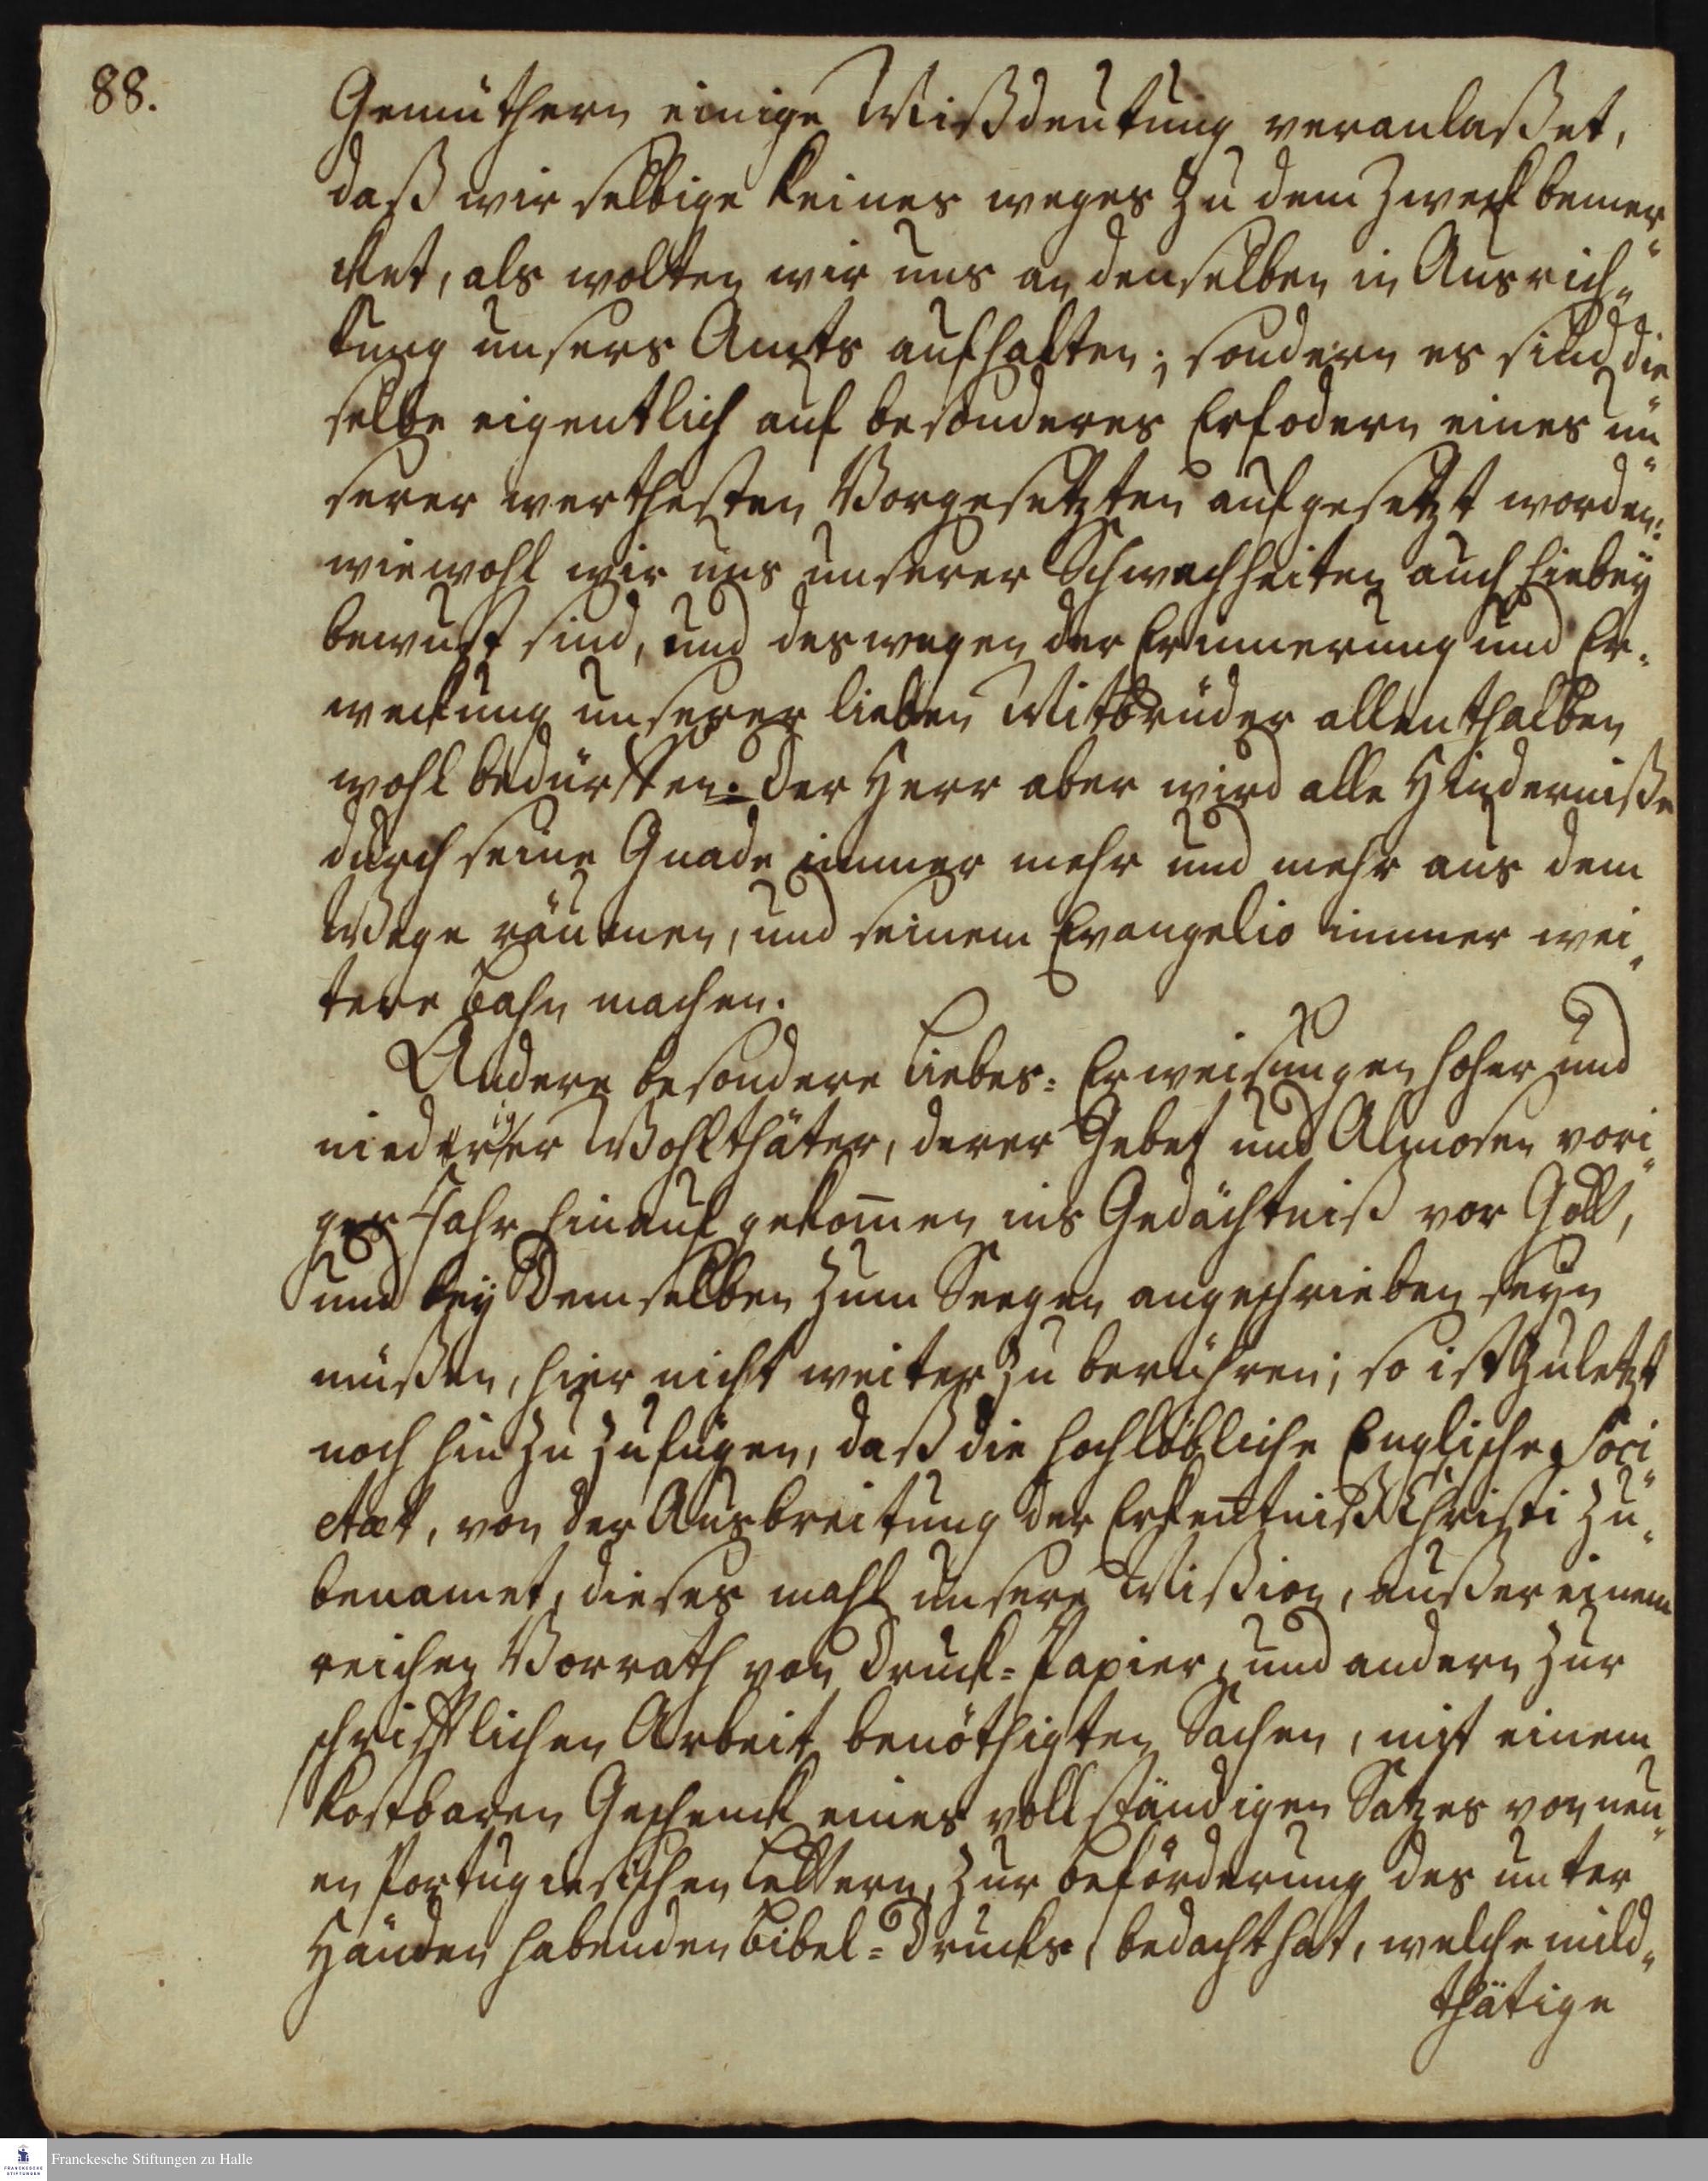 88.
Gemüthern einige Mißdeutung veranlaßet,
daß wir selbige keines weges zu dem Zweck bemer„
cket, als wolten wir uns an denselben in Ausrich„
tung unsers Amts aufhalten; sondern es sind die„
selbe eigentlich auf besonderes Erfodern eines un„
serer werthesten Vorgesetzten aufgesetzt worden:
wiewohl wir uns unserer Schwachheiten auch hiebey
bewust sind, und deswegen der Erinnerung und Er„
weckung unserer lieben Mitbrüder allenthalben
wohl bedürffen. Der Herr aber wird alle Hinderniße
durch seine Gnade immer mehr und mehr aus dem
Wege räumen, und seinem Evangelio immer wei„
tere Bahn machen.
Andere besondere Liebes-Erweisungen hoher und
niedriger Wohlthäter, derer Gebet und Almosen vori„
ges Jahr hinauf gekom̄en ins Gedächtniß vor Gott,
und bey Demselben zum Seegen angeschrieben seyn
müßen, hier nicht weiter zu berühren; so ist zuletzt
noch hinzu zufügen, daß die hochlöbliche Englische Soci„
etaet, von der Ausbreitung der Erkentniß Christi zu„
benamet, dieses mahl unsere Mißion, außer einem
reichen Vorrath von Druck-Papier, und andern zur
schrifftlichen Arbeit benöthigten Sachen, mit einem
kostbaren Geschenck eines vollständigen Satzes von neu„
en Portugiesischen Lettern, zur Beförderung des unter
Händen habenden Bibel-Drucks, bedacht hat, welche mild„
thätige
Franckesche Stiftungen zu Halle
FRANCKESCHE
STIFTUNGEN